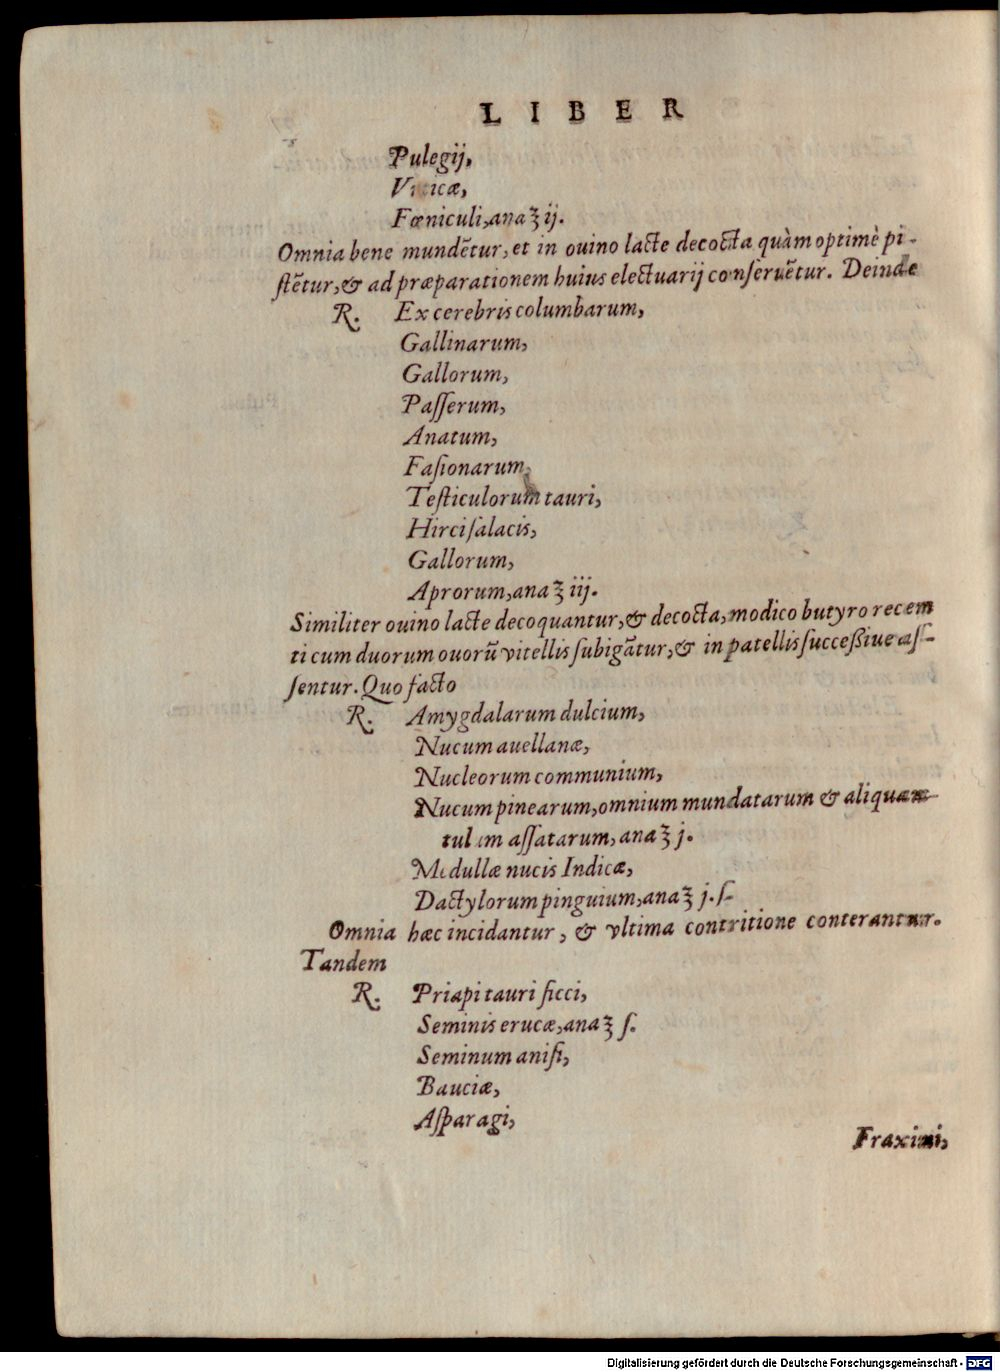 LIBER
Pulegij,
Vrticæ,
Fœniculi, ana ʒ ij.
Omnia bene mundẽtur, et in ouino lacte decocta quàm optimè pi-
ſtẽtur, & ad præparationem huius electuarij conſeruẽtur. Deinde
R. Ex cerebris columbarum,
Gallinarum,
Gallorum,
Paſſerum,
Anatum,
Faſionarum,
Teſticulorum tauri,
Hirci ſalacis,
Gallorum,
Aprorum, ana ʒ iij.
Similiter ouino lacte decoquantur, & decocta, modico butyro recem
ti cum duorum ouorũ vitellis ſubigãtur, & in patellis ſucceßiue aſ-
ſentur. Quo facto
R. Amygdalarum dulcium,
Nucum auellanæ,
Nucleorum communium,
Nucum pinearum, omnium mundatarum & aliquan-
tulum aſſatarum, ana ʒ j.
Medullæ nucis Indicæ,
Dactylorum pinguium, ana ʒ j. ſ.
Omnia hæc incidantur, & vltima contritione conterantur.
Tandem
R. Priapi tauri ſicci,
Seminis erucæ, ana ʒ ſ.
Seminum aniſi,
Bauciæ,
Aſparagi,
Fraxini,
Digitalisierung gefördert durch die Deutsche Forschungsgemeinschaft - DFG